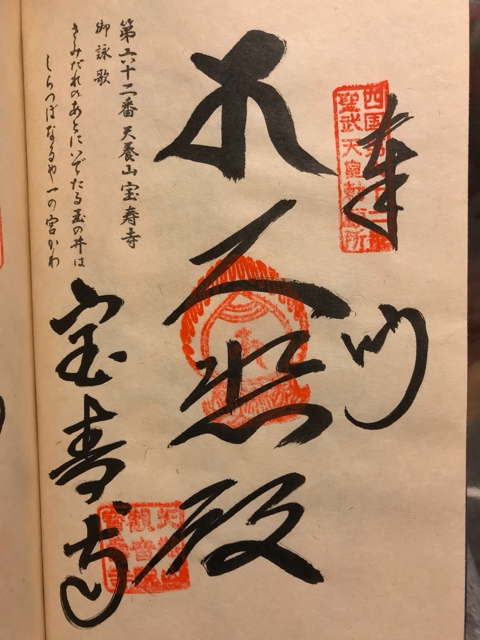 四国第六十二番
聖武天皇勅願所
奉納
大悲殿
宝寿寺
天養山
観音院
宝寿寺
第六十二番 天養山 宝寿寺
御詠歌
さみだれのあとにいでたる玉の井は
しらつぼなるや一の宮かわ